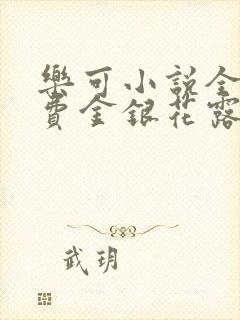 樂可小說全
費金銀花露
武玥